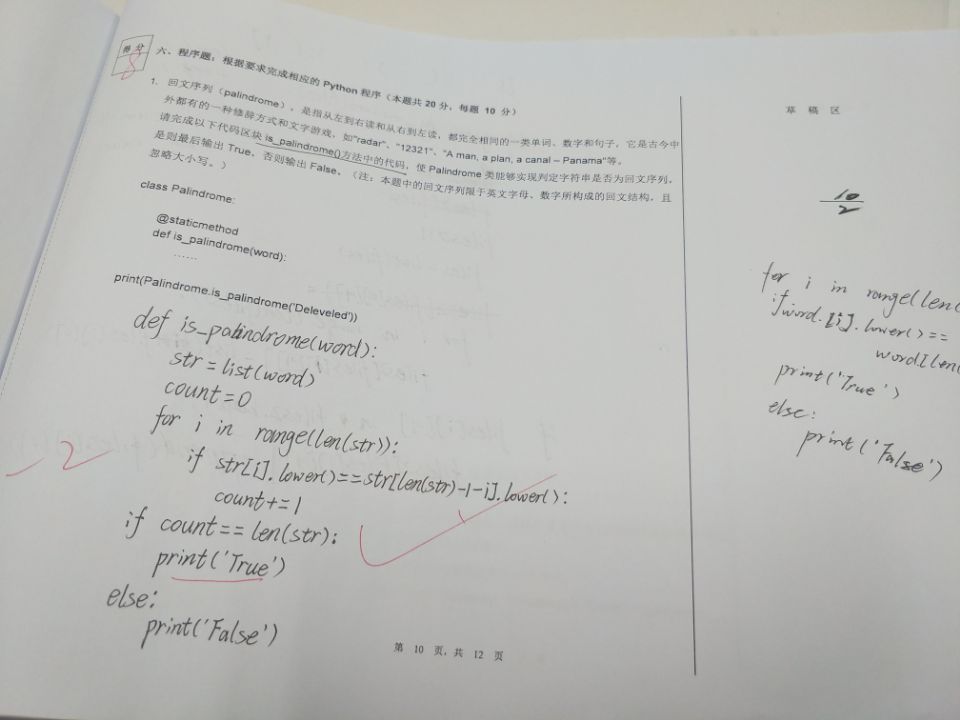 得 分
8
六、程序题：根据要求完成相应的 Python 程序（本题共 20 分，每题 10 分）
1. 回文序列（palindrome），是指从左到右读和从右到左读，都完全相同的一类单词、数字和句子，它是古今中
外都有的一种修辞方式和文字游戏，如"radar"、"12321"、"A man, a plan, a canal – Panama"等。
请完成以下代码区块 is_palindrome()方法中的代码，使 Palindrome 类能够实现判定字符串是否为回文序列，
是则最后输出 True，否则输出 False。（注：本题中的回文序列限于英文字母、数字所构成的回文结构，且
忽略大小写。）
class Palindrome:
@staticmethod
def is_palindrome(word):
......
print(Palindrome.is_palindrome('Deleveled'))
def is_palindrome(word):
str = list(word)
count=0
for i in range(len(str)):
if str[i].lower()==str[len(str)-1-i].lower():
count+=1
if count==len(str):
print('True')
else:
print('False')
-2
第 10 页，共 12 页
草 稿 区
10
2
for i in range(len(
if word.[i].lower()==
word[len(
print('True')
else:
print('False')